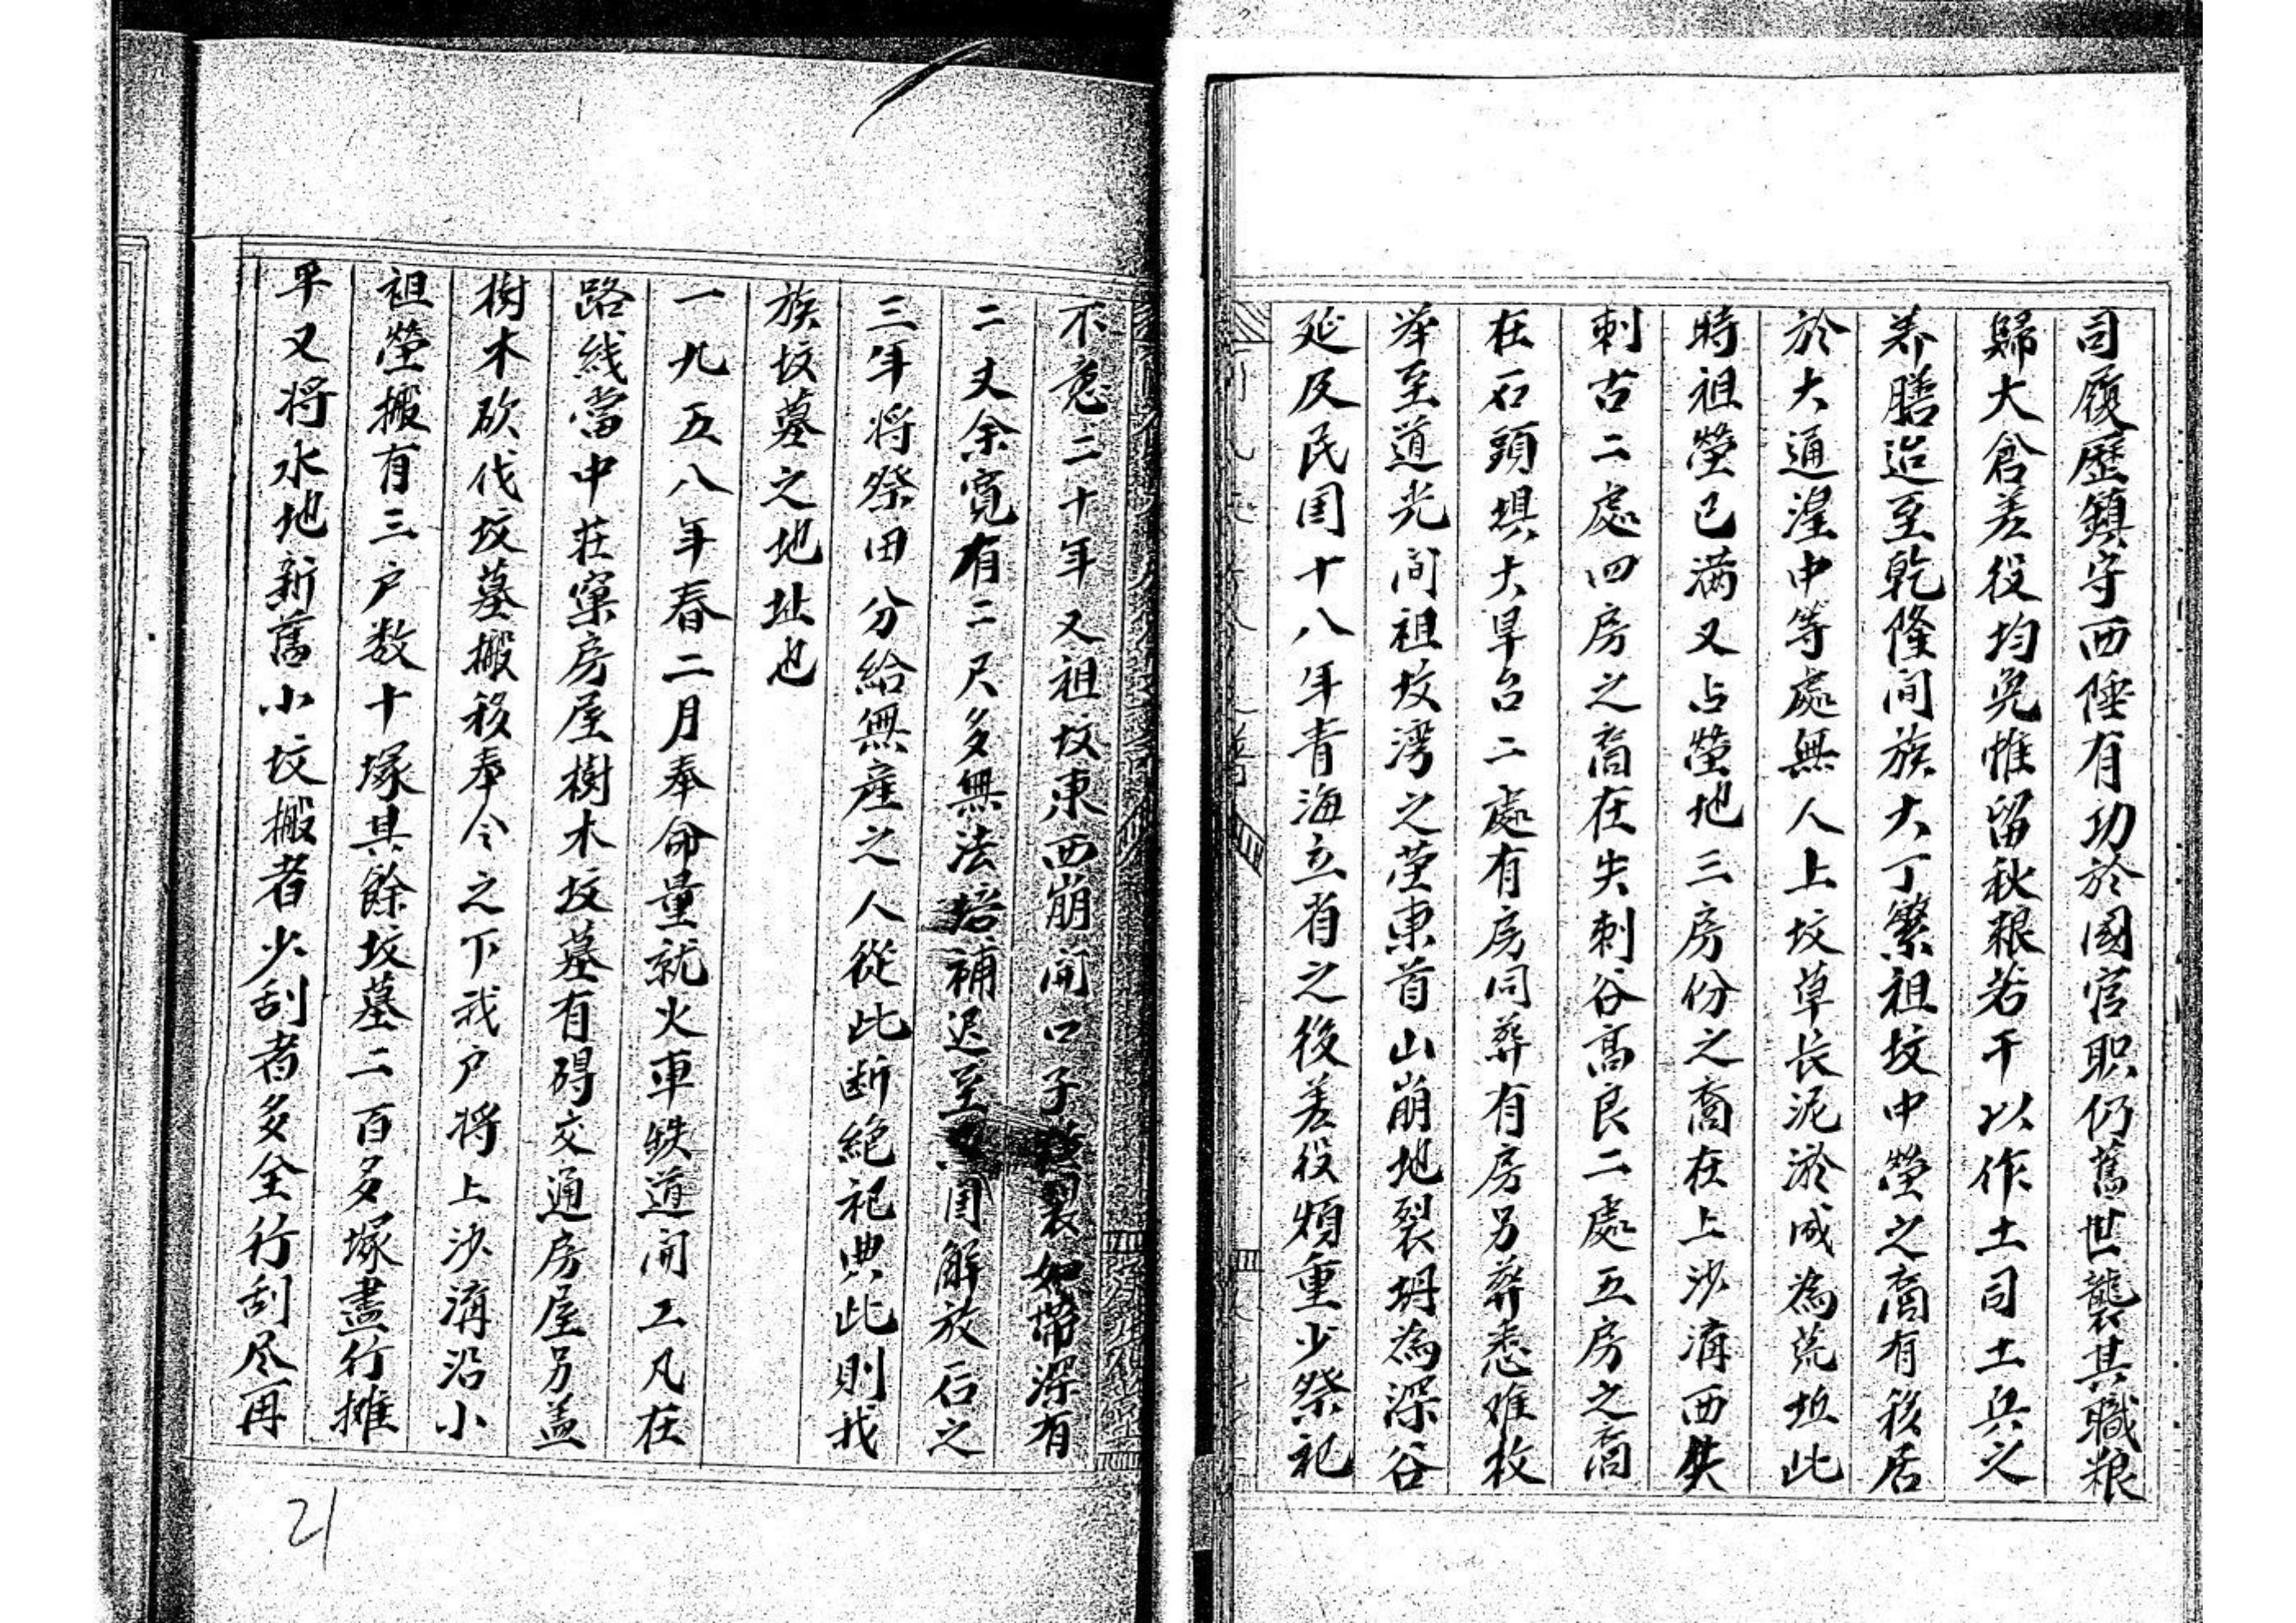 司履歷鎮守西陲有功於國官职仍舊世襲其職粮
歸大倉差役均免惟留秋粮若干以作土司土兵之
养膳迨至乾隆间族大丁繁祖坟中塋之裔有移居
於大通湟中等處無人上坟草长泥淤成為荒坵此
時祖塋已满又占塋地三房份之裔在上沙溝西失
刺古二處四房之裔在失刺谷高良二處五房之裔
在石頭埧大旱台二處有房同葬有房另葬悉难枚
举至道光间祖坟湾之茔東首山崩地裂坍為深谷
延及民国十八年青海立省之後差役煩重少祭祀
不意二十年又祖坟東西崩開口子裂如帶深有
二丈余寬有二尺多無法培補迟至解放后之
三年将祭田分給無産之人從此断絶祀典此則我
族坟墓之地址也
一九五八年春二月奉命量就火車铁道间工凡在
路线當中荘窠房屋樹木坟墓有碍交通房屋另盖
樹木砍伐坟墓搬移奉令之下我户将上沙溝沿小
祖塋搬有三户数十塚其餘坟墓二百多塚盡行摊
平又将水地新舊小坟搬者少刮者多全行刮尽再
21